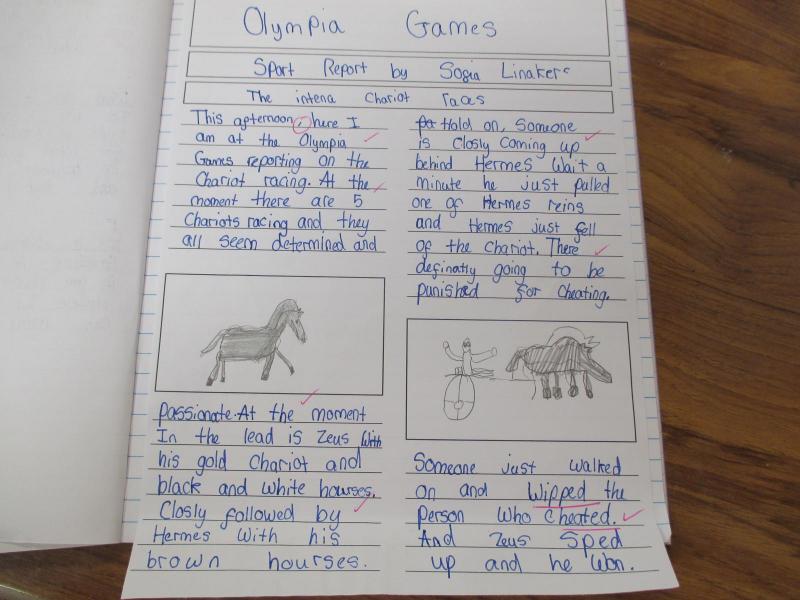 Olympia Games
Sport Report by Sogia Linakers
The intena Chariot races
This afternoon, here I
am at the Olympia
Games reporting on the
Chariot racing. At the
moment there are 5
Chariots racing and they
all seem determined and
passionate. At the moment
In the lead is Zeus with
his gold Chariot and
black and white hourses.
Closly followed by
Hermes with his
brown hourses.
Hold on, Someone
is Closly Coming up
behind Hermes Wait a
minute he just pulled
one of Hermes reins
and Hermes just fell
of the Chariot. There
definatly going to be
punished for Cheating.
Someone just walked
on and Wipped the
person who cheated.
And Zeus Sped
up and he Won.